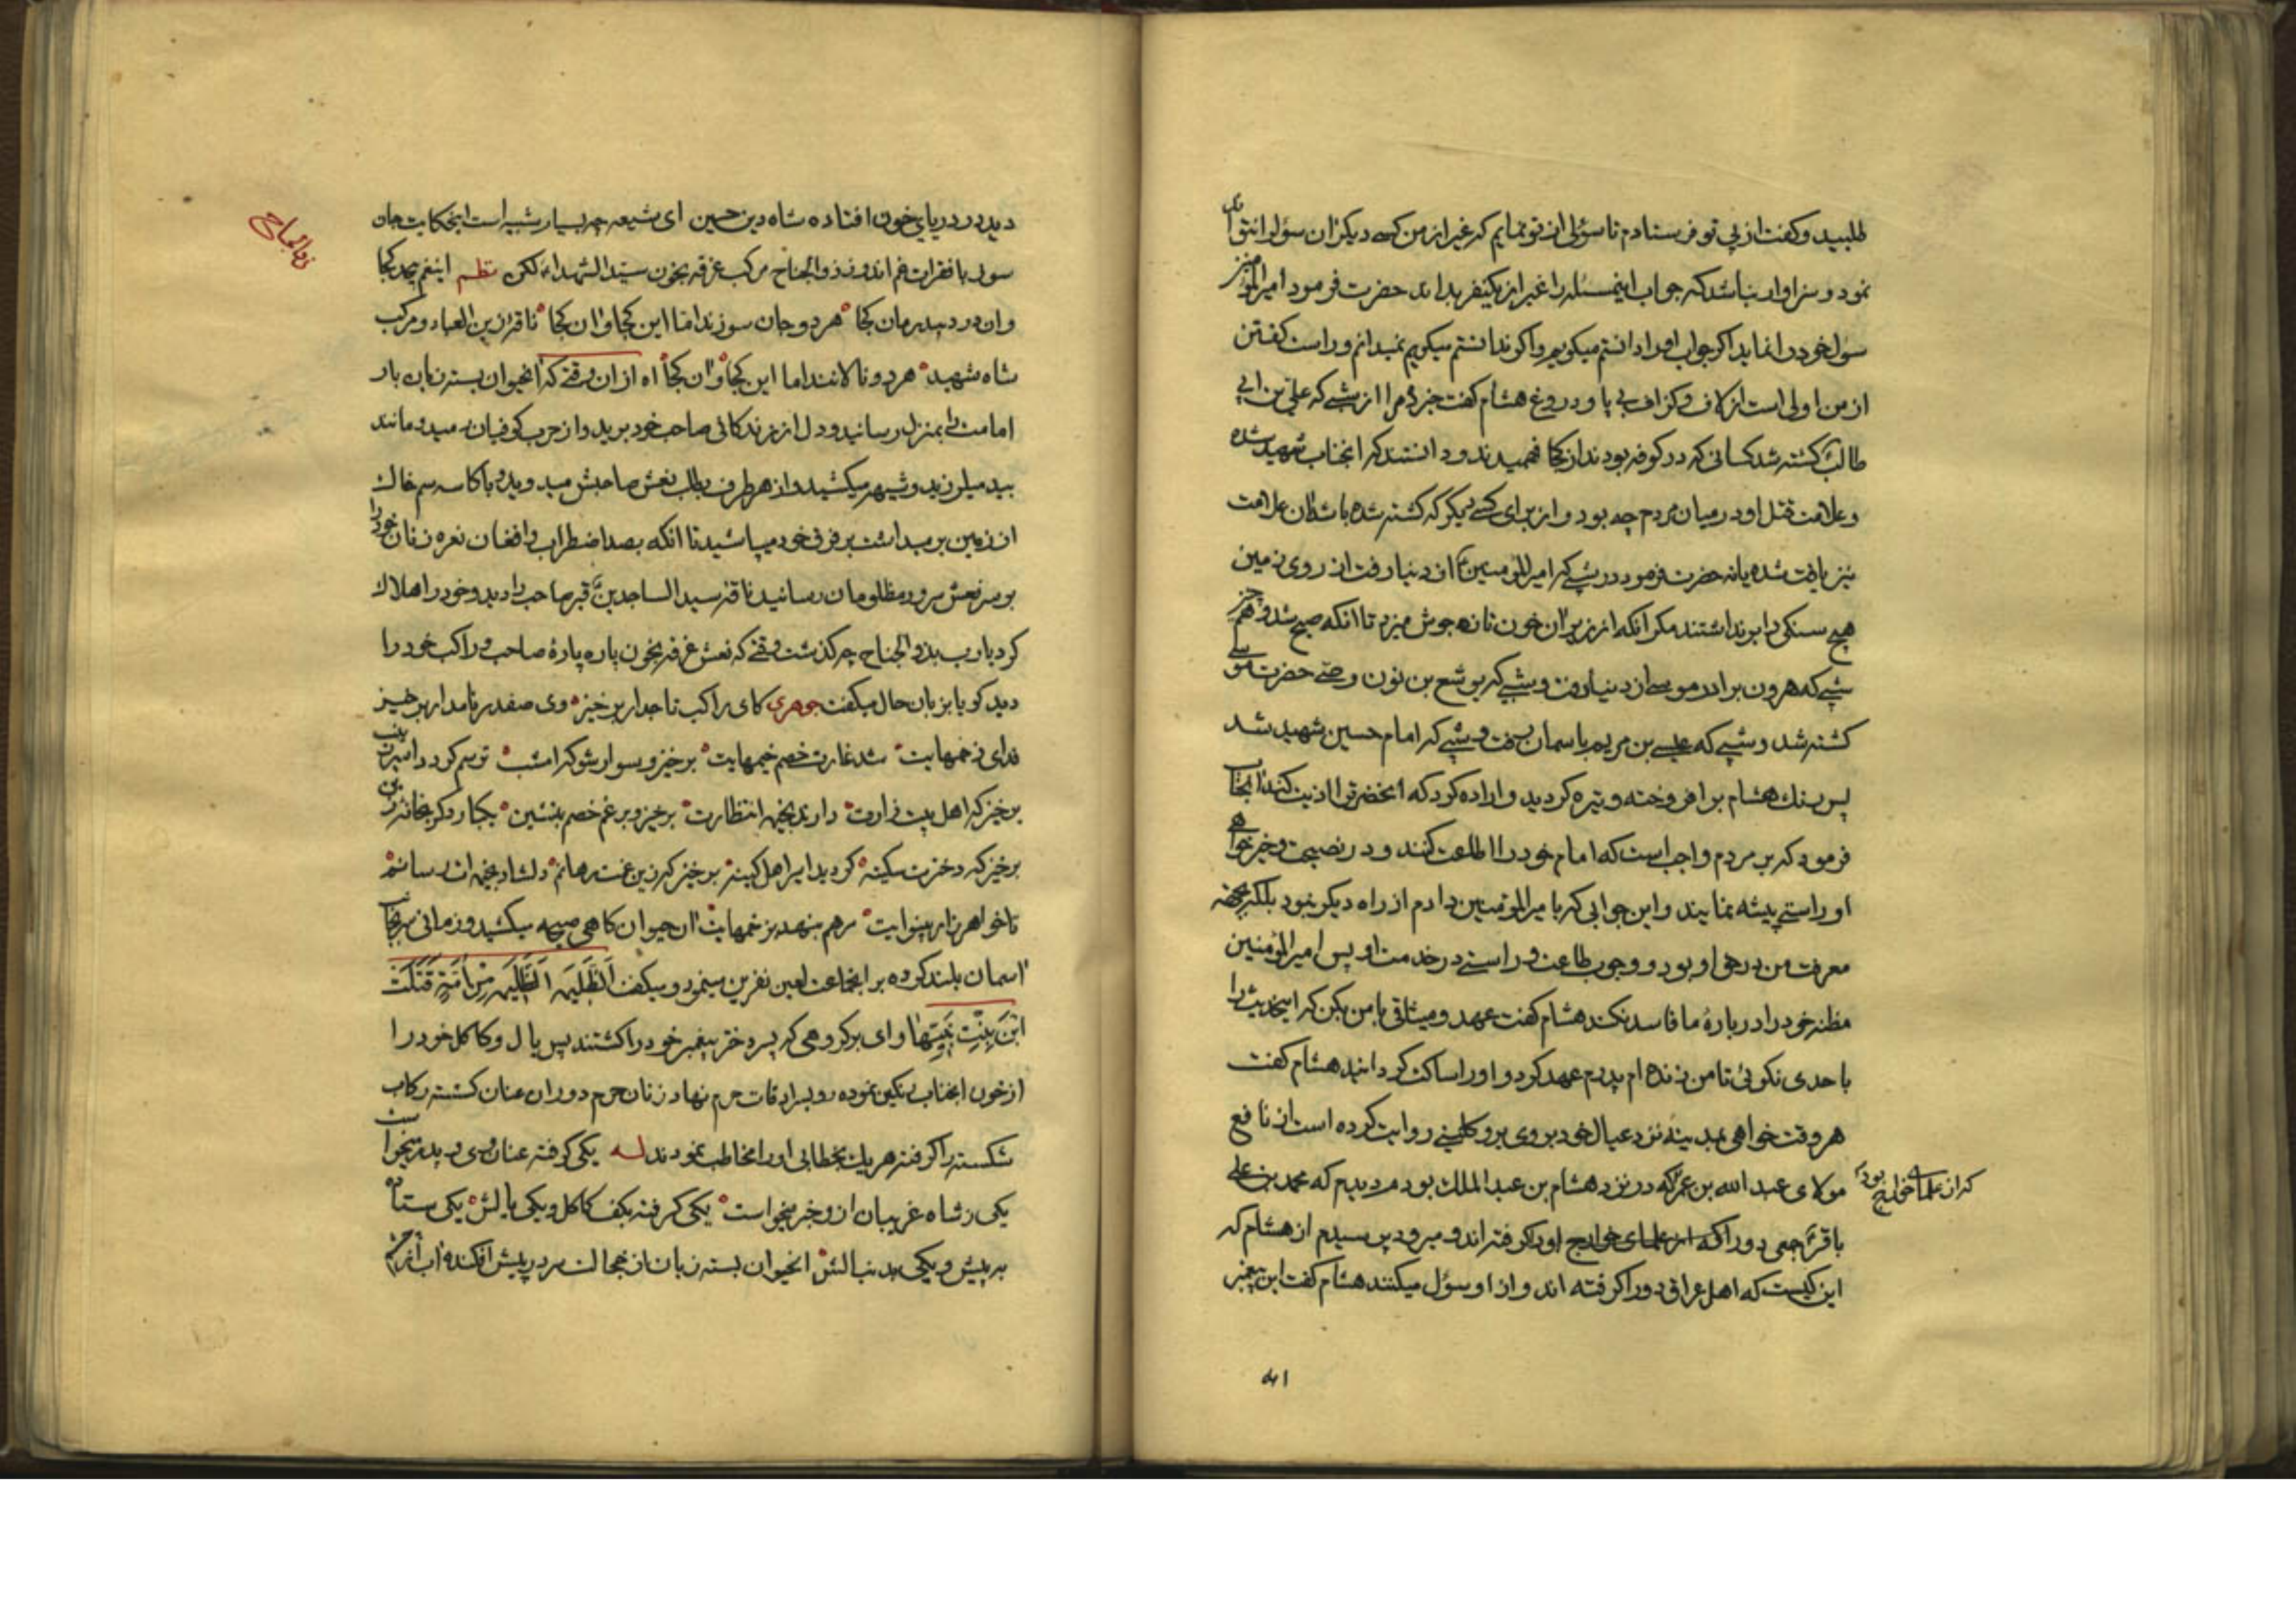 طلبید و کفت از پی تو فرستادم تا سؤلی از تو نمایم که غیر از من کسی دیکر ان سؤل را نتواند
نمود و سزاوار نباشد که جواب اینمسئله را غیر از یکنفر بداند حضرت فرمود امیرالمؤمنین
سؤل خود را نماید اکر جواب او را دانستم میکویم و اکر ندانستم میکویم نمیدانم و راست کفتن
از من اولی است از لاف و کزاف بی پا و دروغ هشام کفت خبر ده مرا از شبی که علی بن ابی
طالب کشته شد کسانی که در کوفه بودند از کجا فهمیدند و دانستند که انجناب شهید شده
و علامت قتل او در میان مردم چه بود و از برای کسی دیکر که کشته شده باشد ان علامت
نیز یافت شده یا نه حضرت فرمود در شبی که امیرالمؤمنین ع از دنیا رفت از روی زمین
هیچ سنکی را بر نداشتند مکر انکه از زیر ان خون تازه جوش میزد تا انکه صبح شد و همچنین
شبی که هرون برادر موسی از دنیا رفت و شبی که یوشع بن نون وصی حضرت موسی
کشته شد و شبی که عیسی بن مریم باسمان رفت و شبی که امام حسین شهید شد
پس رنک هشام بر افروخته و تیره کردید و اراده کرد که انحضرت را اذیت کند انجناب
فرمود که بر مردم واجب است که امام خود را اطاعت کنند و در نصیحت و خیر خواهی
او راستی پیشه نمایند و این جوابی که بامیرالمؤمنین دادم از راه دیکر نبود بلکه محض
معرفت من در حق او بود و وجوب طاعت و راستی در خدمت او پس امیرالمؤمنین
مظنه خود را در بارهٔ ما فاسد نکند هشام کفت عهد و میثاقی با من بکن که اینحدیث را
با حدی نکوئی تا من زنده ام پدرم عهد کرد و او را ساکت کردانید هشام کفت
هر وقت خواهی بمدینه نزد عیال خود بروی برو کلینی روایت کرده است از نافع
مولای عبدالله بن عمر که در نزد هشام بن عبد الملک بودم دیدم که محمد بن علی
که از علمای خوارج بود
باقر ع جمعی دور او را کرفته اند و میرود پرسیدم از هشام که
این کیست که اهل عراق دور او را کرفته اند و از او سؤل میکنند هشام کفت این پیغمبر
ذوالجناح
دید در دریای خون افتاده شاه دین حسین ای شیعه چه بسیار شبیه است اینحکایت جان
سوز با فقرات غم اندوز ذوالجناح مرکب غرقه بخون سید الشهداء لکن نظم اینغم بیحد کجا
وان درد بیدرمان کجا هر دو جان سوزند اما این کجا و ان کجا ناقهٔ زین العباد و مرکب
شاه شهید هر دو نالانند اما این کجا و ان کجا اه از ان وقتی که انحیوان بسته زبان بار
امامت را بمنزل رسانید و دل از زندکانی صاحب خود برید و از حرب کوفیان رمید و مانند
بید میلرزید و شیهه میکشید و از هر طرف بطلب نعش صاحبش میدوید و با کاسه سم خاک
از زمین بر میداشت بر فرق خود میپاشید تا انکه بصد اضطراب و افغان نعره زنان خود را
بر سر نعش سرور مظلومان رسانید ناقه سید الساجدین ع قبر صاحب را دید و خود را هلاک
کرد یا رب بذوالجناح چه کذشت وقتی که نعش غرقه بخون پاره پارهٔ صاحب و راکب خود را
دید کویا بزبان حال میکفت جوهری کای راکب تاجدار بر خیز وی صفدر نامدار بر خیز
فدای زخمهایت شد غارت خصم خیمهایت بر خیز و سوار شو که امشب ترسم کردد اسیر زینب
بر خیز که اهل بیت زارت دارند بخیمه انتظارت بر خیز و برغم خصم بنشین یکبار دکر بخانه زین
بر خیز که دخترت سکینه کردید اسیر اهل کینه بر خیز که زین غمت رهانم دلشاد بخیمه ات رسانم
تا خواهر زار بینوایت مرهم بنهد بزخمهایت ان حیوان کاهی صیحه میکشید و زمانی سر بجانب
اسمان بلند کرده بر انجماعت لعین نفرین مینمود و میکفت اَلظَّلِیمَه اَلظَّلِیمَه مِنْ اُمَّةٍ قَتَلَتْ
ابْنَ بِنْتِ نَبِیِّهَا وای بر کروهی که پسر دختر پیغمبر خود را کشتند پس یال و کاکل خود را
از خون انجناب رنکین نموده رو بسرادقات حرم نهاد زنان حرم دور ان عنان کسسته رکاب
شکسته را کرفته هر یک بخطابی او را مخاطب نمودند له یکی کرفته عنان وی و پدر میخواست
یکی ز شاه غریبان از و خبر میخواست یکی کرفته بکف کاکل و یکی یالش یکی ستاده
به پیش و یکی بدنبالش انحیوان بسته زبان از خجالت سر در پیش افکنده